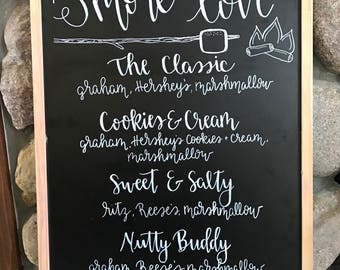 S'more Love
The Classic
graham, Hershey's, marshmallow
Cookies & Cream
graham, Hershey's Cookies + Cream,
marshmallow
Sweet & Salty
ritz, Reese's, marshmallow
Nutty Buddy
graham, Reese's, marshmallow